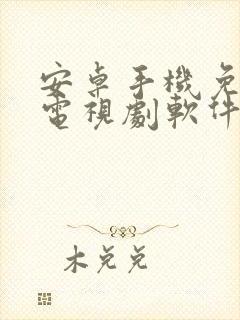 安卓手機免
電視劇軟件
木兑兑